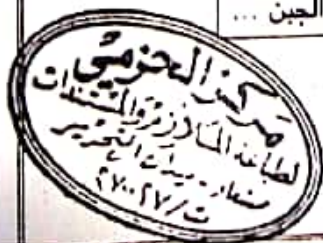 الجبن ...
مركز الحزمي
لطباعة الملازم والمستندات
صنعاء - ميدان التحرير
ت/٢٧٠٠٢٧